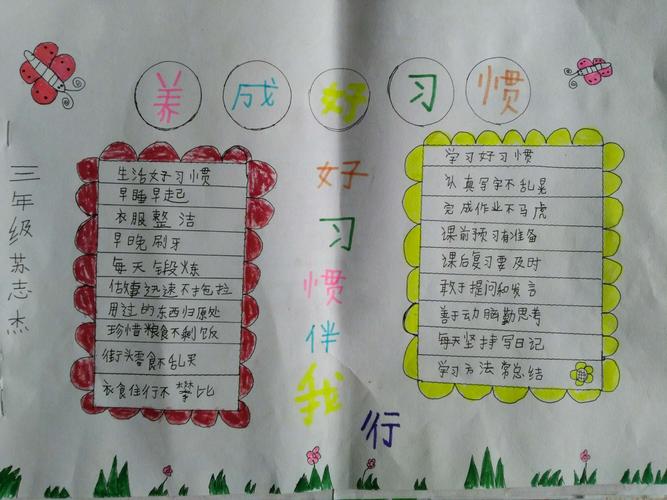 养成好习惯
三年级 苏志杰
生活好习惯
早睡早起
衣服整洁
早晚刷牙
每天锻炼
做事迅速不拖拉
用过的东西归原处
珍惜粮食不剩饭
街头零食不乱买
衣食住行不攀比
好习惯伴我行
学习好习惯
认真写字不乱晃
完成作业不马虎
课前预习有准备
课后复习要及时
敢于提问和发言
善于动脑勤思考
每天坚持写日记
学习方法常总结